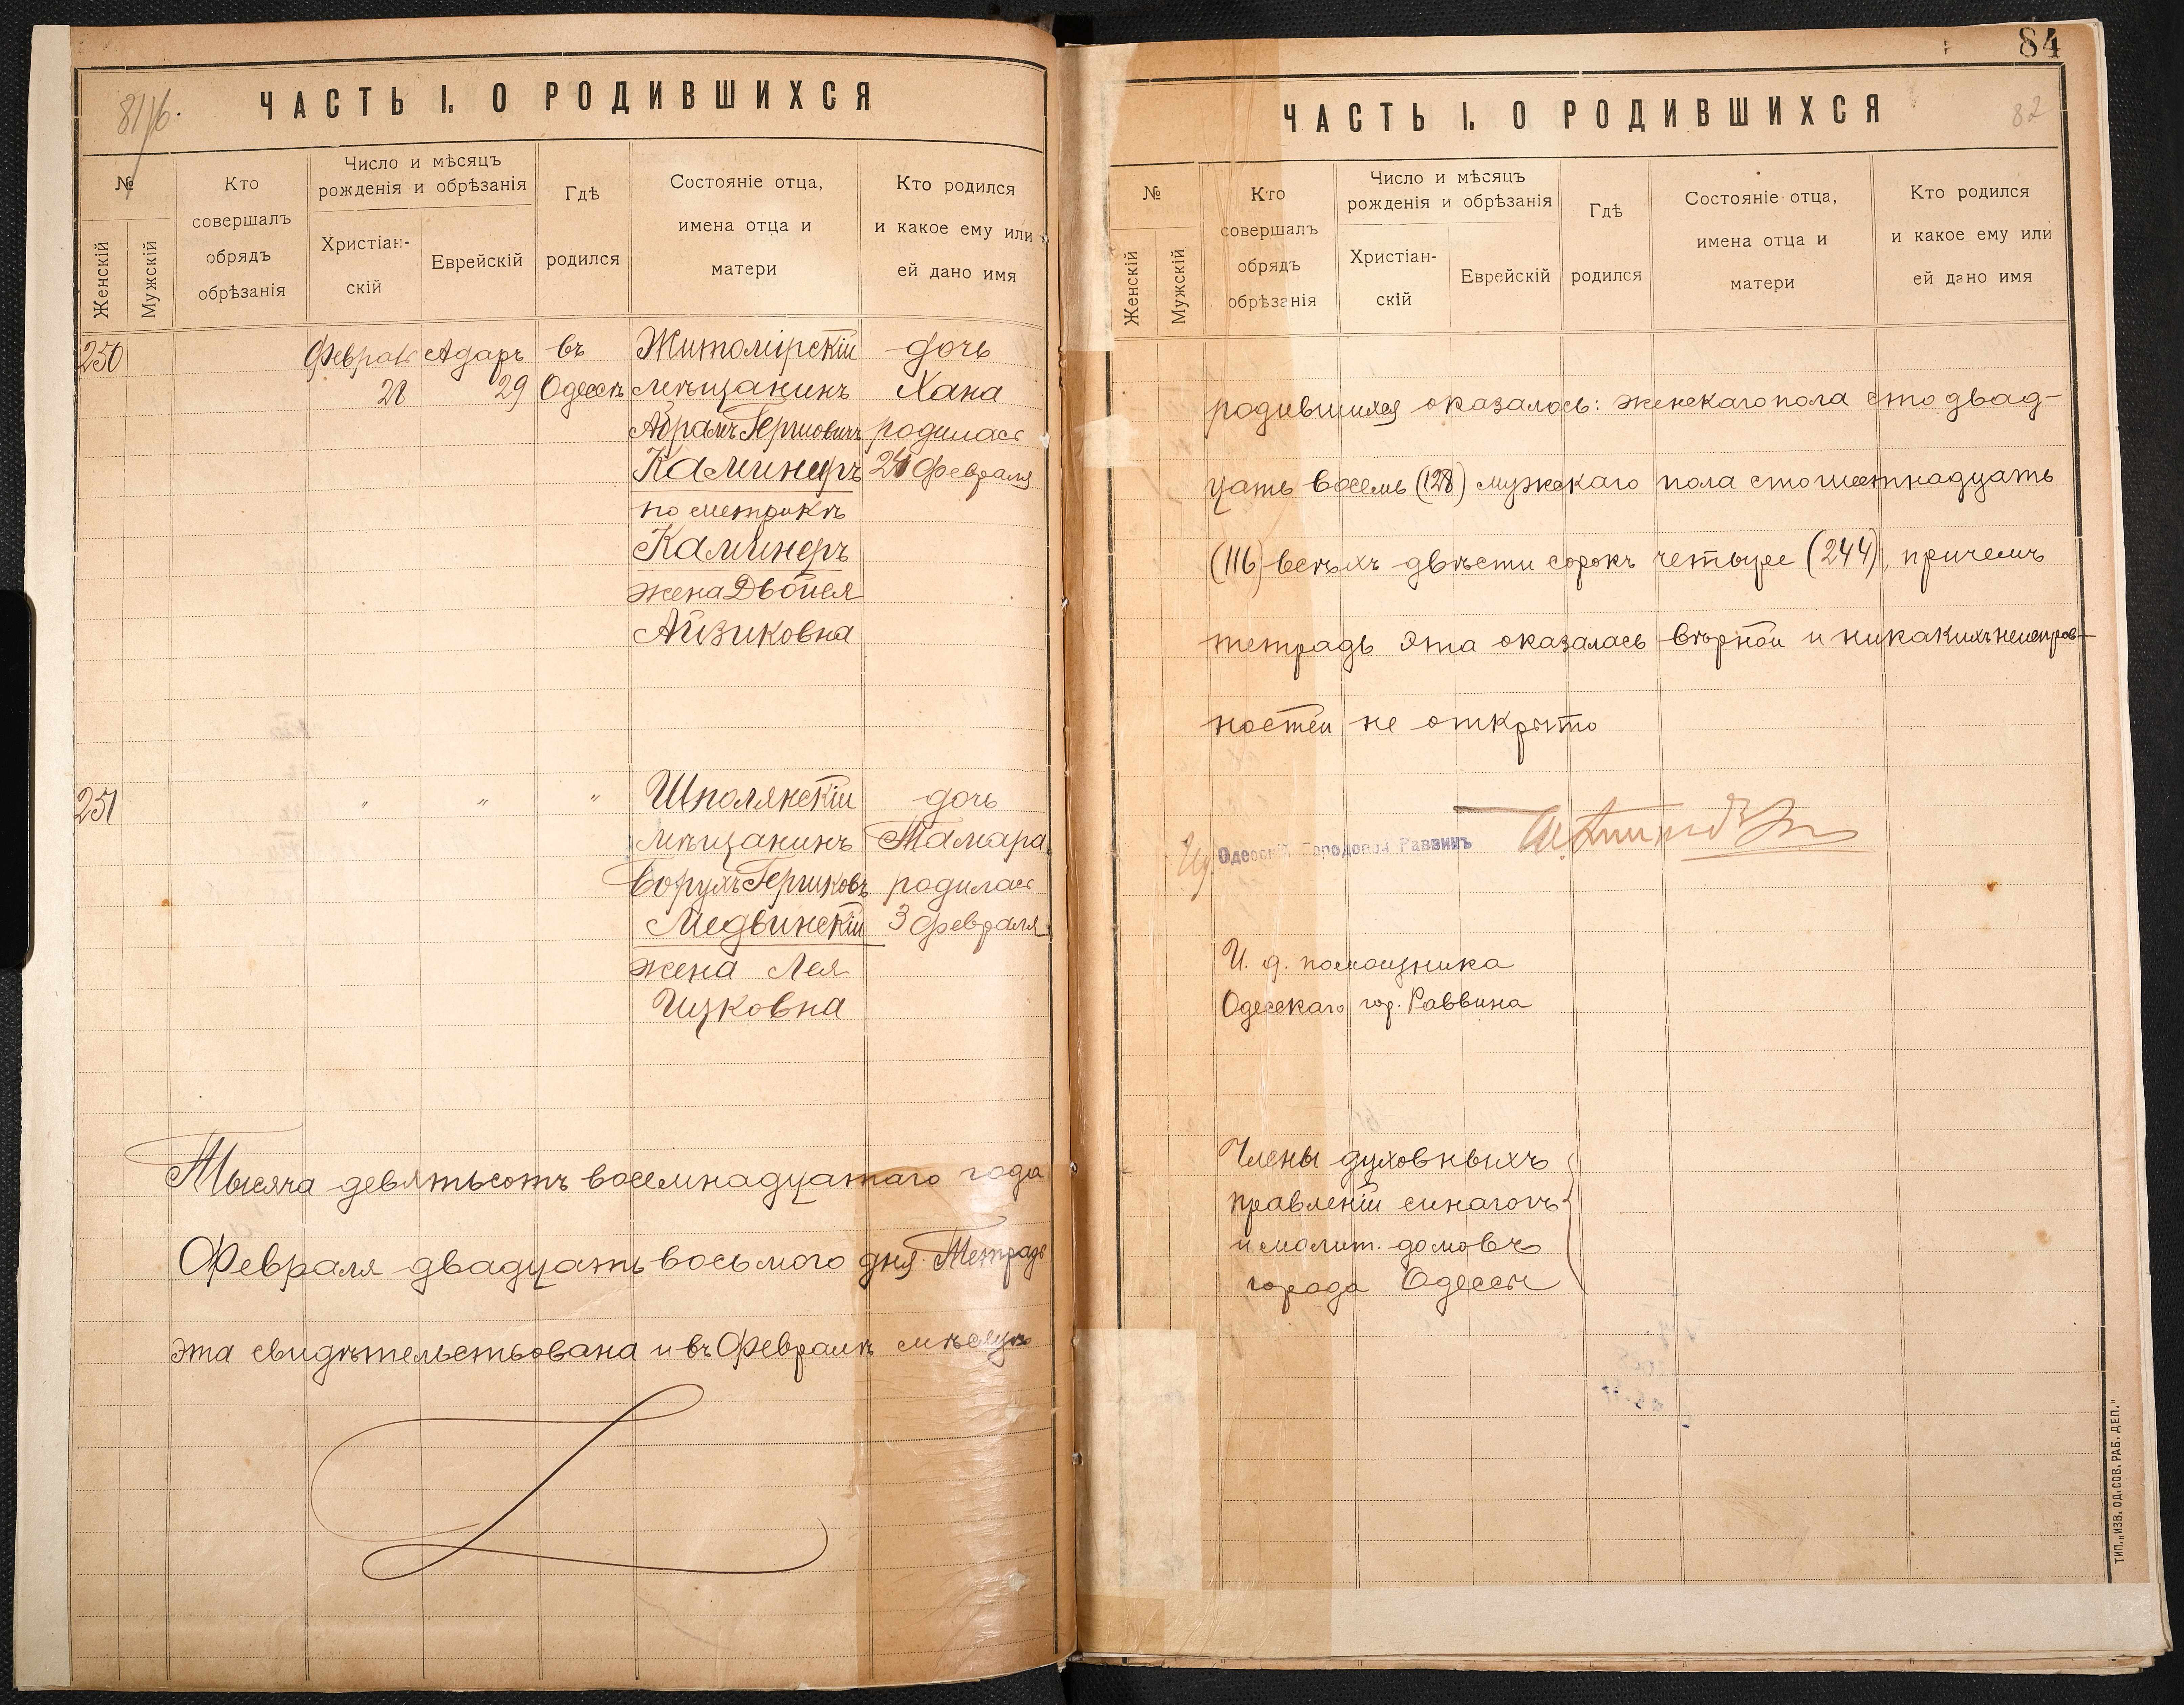 81/6.
ЧАСТЬ I. О РОДИВШИХСЯ
№
Женскій
Мужскій
Кто
совершалъ
обрядъ
обрѣзанія
Число и мѣсяцъ
рожденія и обрѣзанія
Христіан-
скій
Еврейскій
Гдѣ
родился
Состояніе отца,
имена отца и
матери
Кто родился
и какое ему или
ей дано имя
250
Феврал
28
Адаръ
29
въ
Одессѣ
Житомірскій
мѣщанинъ
Абрамъ Гершовичъ
Каминеръ
по метрикѣ
Каминеръ
жена Двойся
Айзиковна
дочь
Хана
родилась
24 февраля
251
"
"
"
Шполянскій
мѣщанинъ
Борухъ Гершковъ
Медвинскій
жена Лея
Ицковна
дочь
Тамара
родилась
3 февраля
Тысяча девятьсотъ восемнадцатаго года
Февраля двадцать восьмого дня. Тетрадь
эта свидѣтельствована и въ Февралѣ мѣсяцѣ
84
82
ЧАСТЬ I. О РОДИВШИХСЯ
№
Женскій
Мужскій
Кто
совершалъ
обрядъ
обрѣзанія
Число и мѣсяцъ
рожденія и обрѣзанія
Христіан-
скій
Еврейскій
Гдѣ
родился
Состояніе отца,
имена отца и
матери
Кто родился
и какое ему или
ей дано имя
родившихся оказалось: женскаго пола сто двад-
цать восемь (128) мужскаго пола сто шестнадцать
(116) всѣхъ двѣсти сорокъ четыре (244), причемъ
тетрадь эта оказалась вѣрной и никакихъ неисправ-
ностей не открыто
Одесскій Городовой Раввинъ
И. д. помощника
Одесскаго гор. Раввина
Члены духовныхъ
правленій синагогъ
и молит. домовъ
города Одессы
ТИП. „ИЗВ. ОД. СОВ. РАБ. ДЕП."